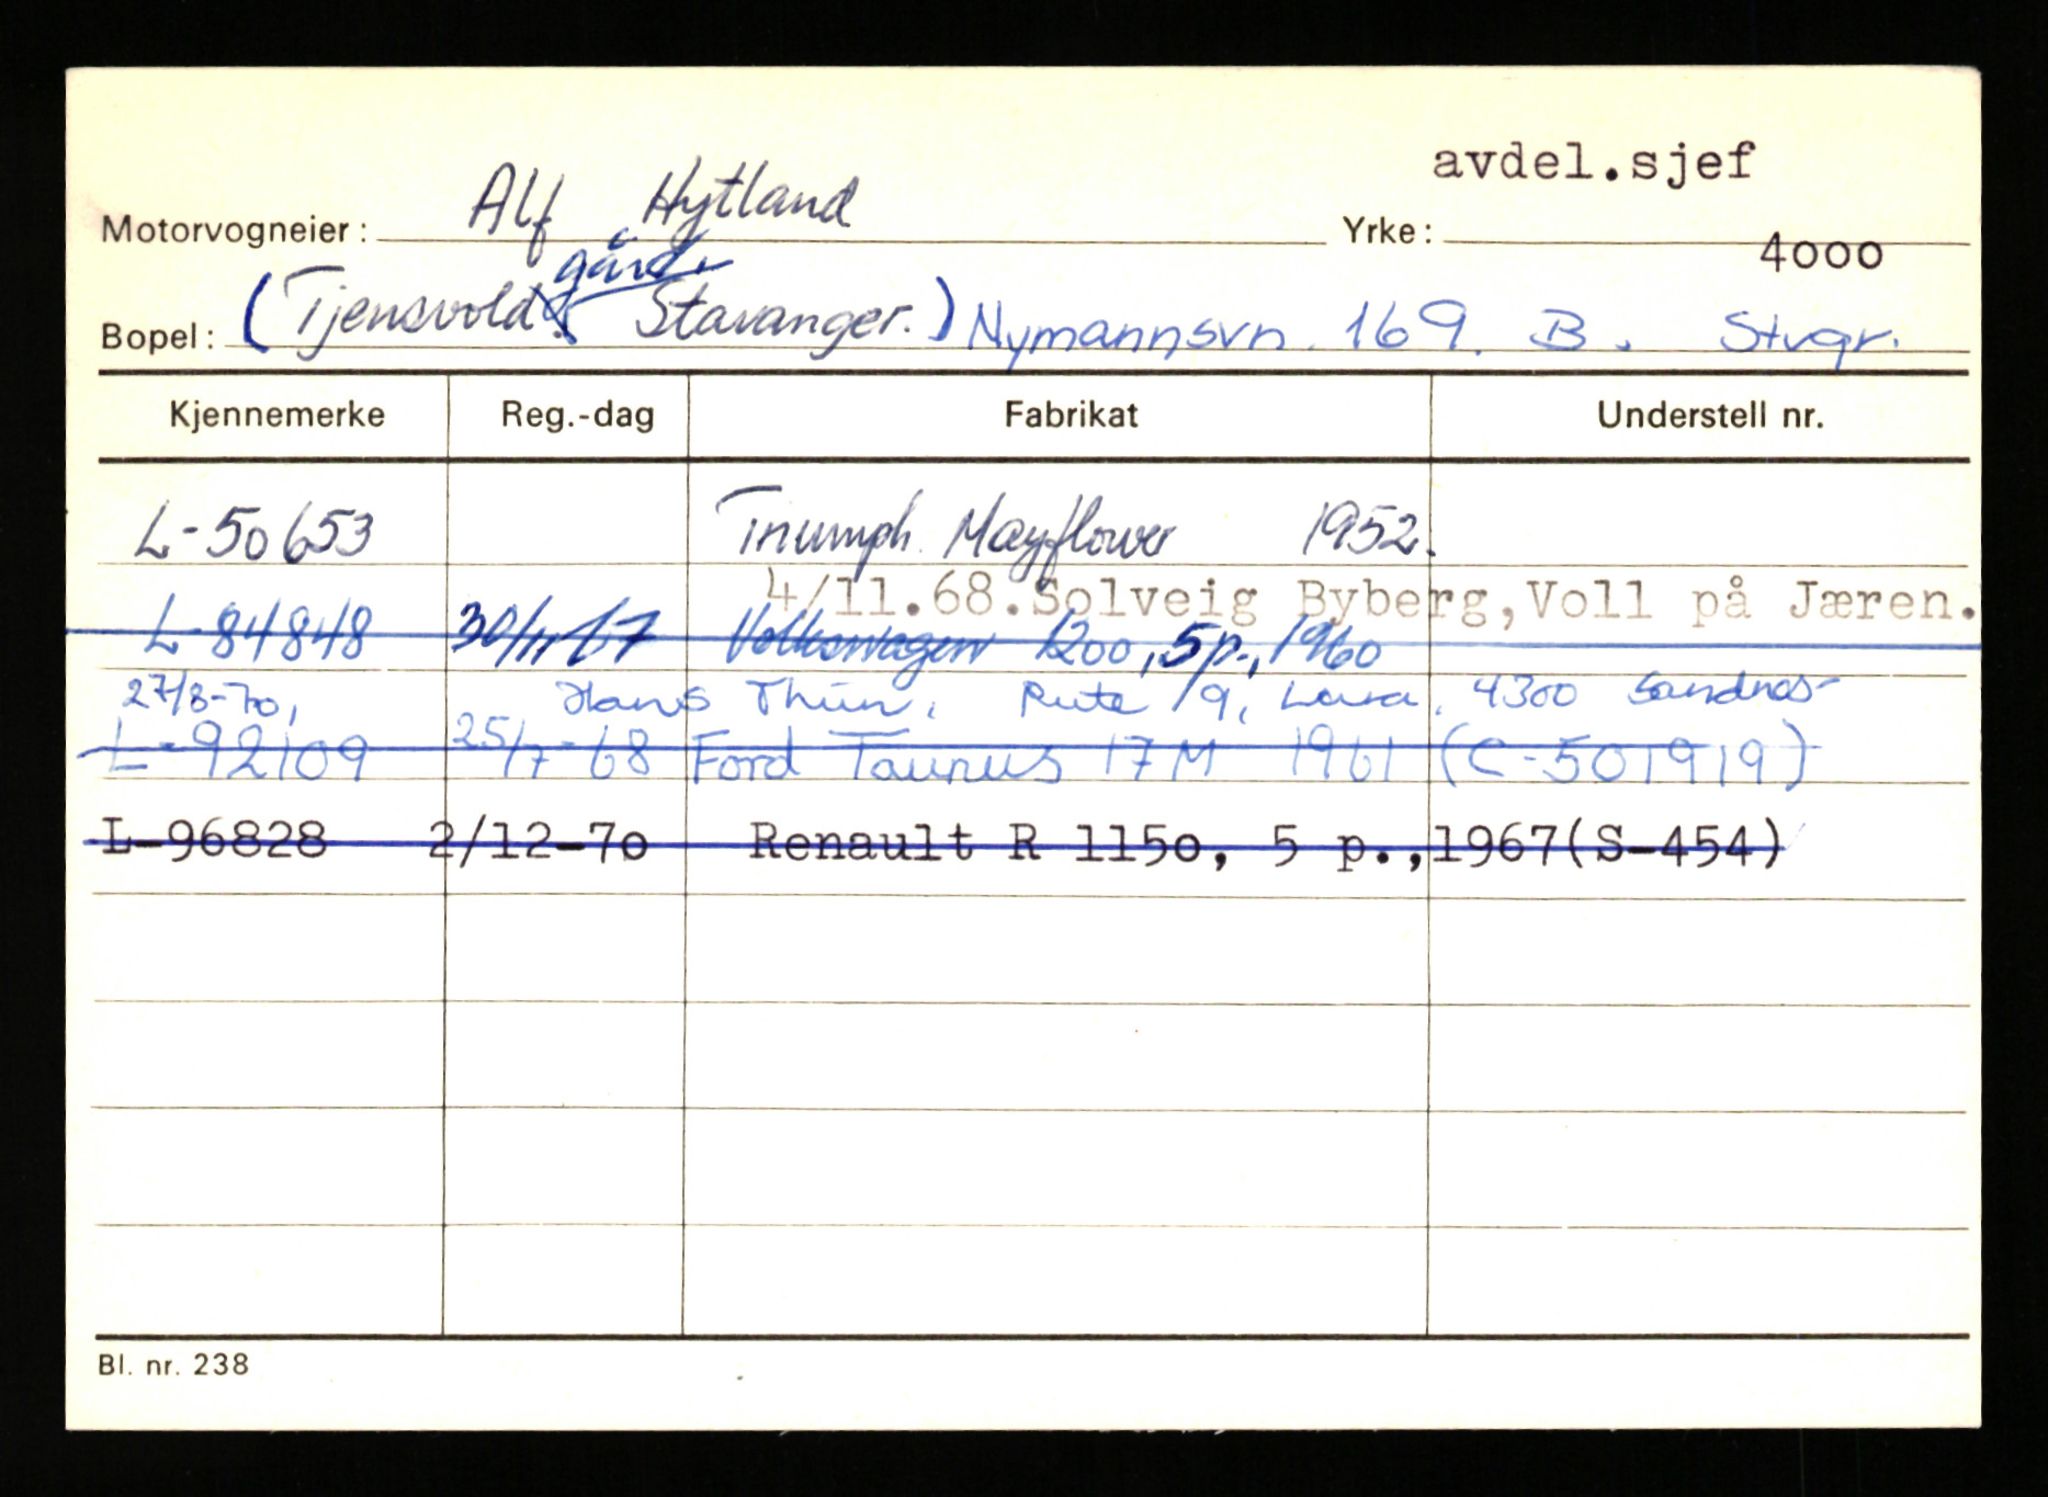 avdel.sjef
Motorvogneier: Alf Hytland Yrke:
4000
gård.
Bopel: (Tjensvold. Stavanger.) Nymannsvn. 169. B. Stvgr.
Kjennemerke Reg.-dag Fabrikat Understell nr.
L-50653 Triumph Mayflower 1952.
4/11.68.Solveig Byberg,Voll på Jæren.
L-84848 30/11 67 Volkswagen 1200, 5p., 1960
27/8-70, Hans Thun, Rute 19, 4300 Sandnes
L-92109 25/7-68 Ford Taunus 17M 1961 (C-501919)
L-96828 2/12-70 Renault R 1150, 5 p.,1967(S-454)
Bl. nr. 238